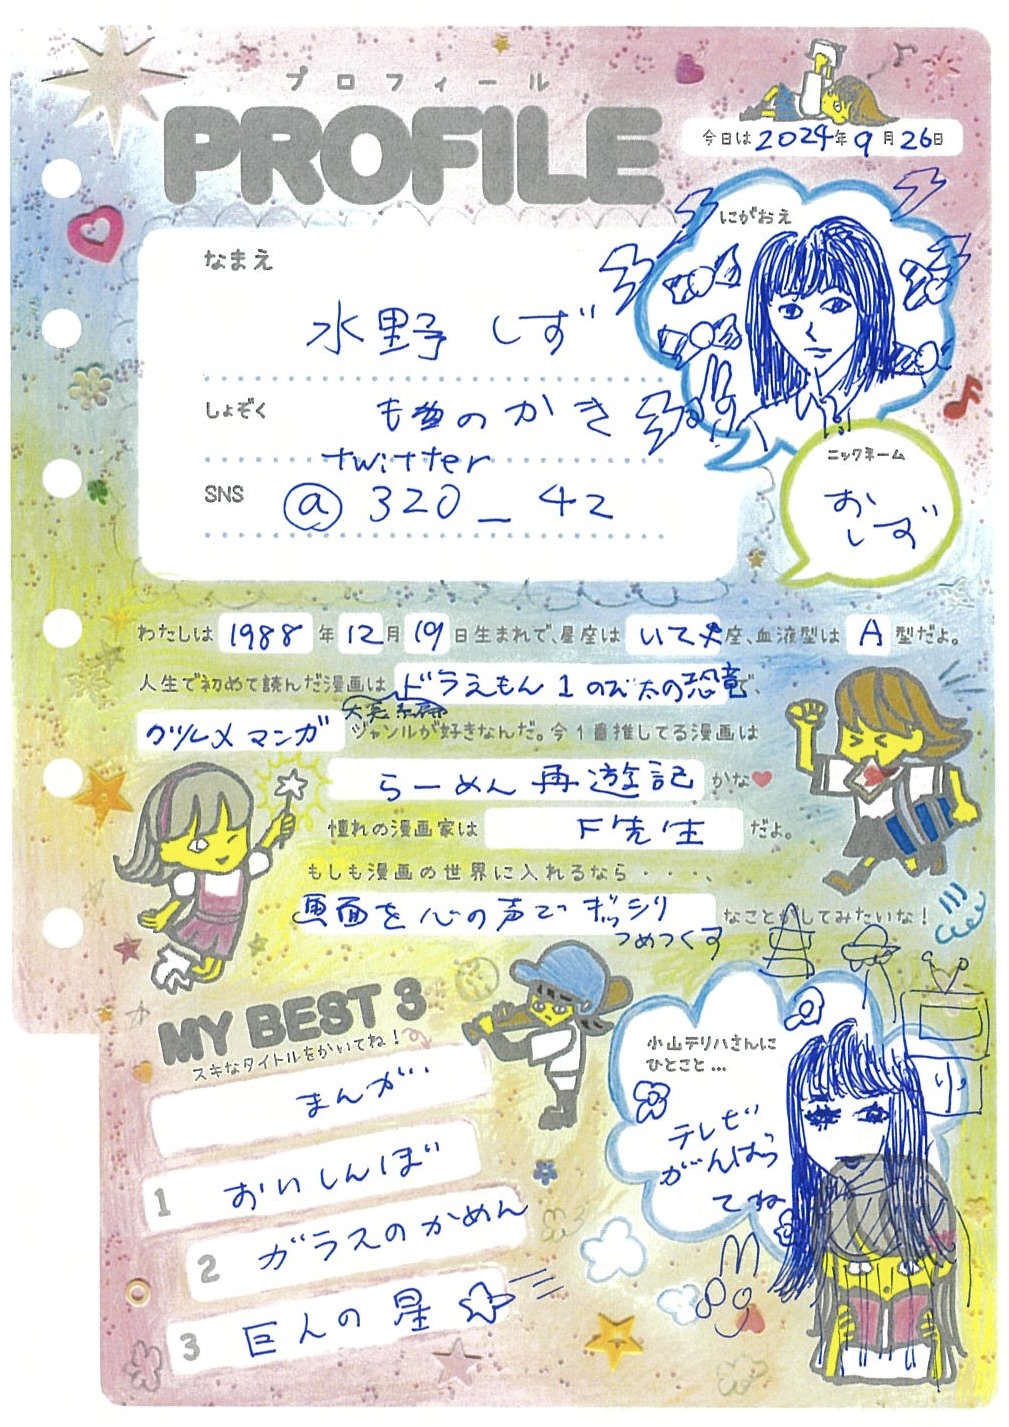 プロフィール
PROFILE
今日は2024年9月26日
にがおえ
なまえ
水野しず
しょぞく
ものかき
twitter
SNS @320_42
ニックネーム
おしず
わたしは1988年12月19日生まれで、星座はいて座、血液型はA型だよ。
人生で初めて読んだ漫画はドラえもん1のび太の恐竜で、
大長編
グルメマンガジャンルが好きなんだ。今1番推してる漫画は
らーめん再遊記かな♥
憧れの漫画家はF先生だよ。
もしも漫画の世界に入れるなら・・・・、
画面を心の声でギッシリ
つめつくすなことがしてみたいな!
MY BEST 3
スキなタイトルをかいてね!
まんが
1 おいしんぼ
2 ガラスのかめん
3 巨人の星
小山テリハさんに
ひとこと…
テレビ
がんばっ
てね
小